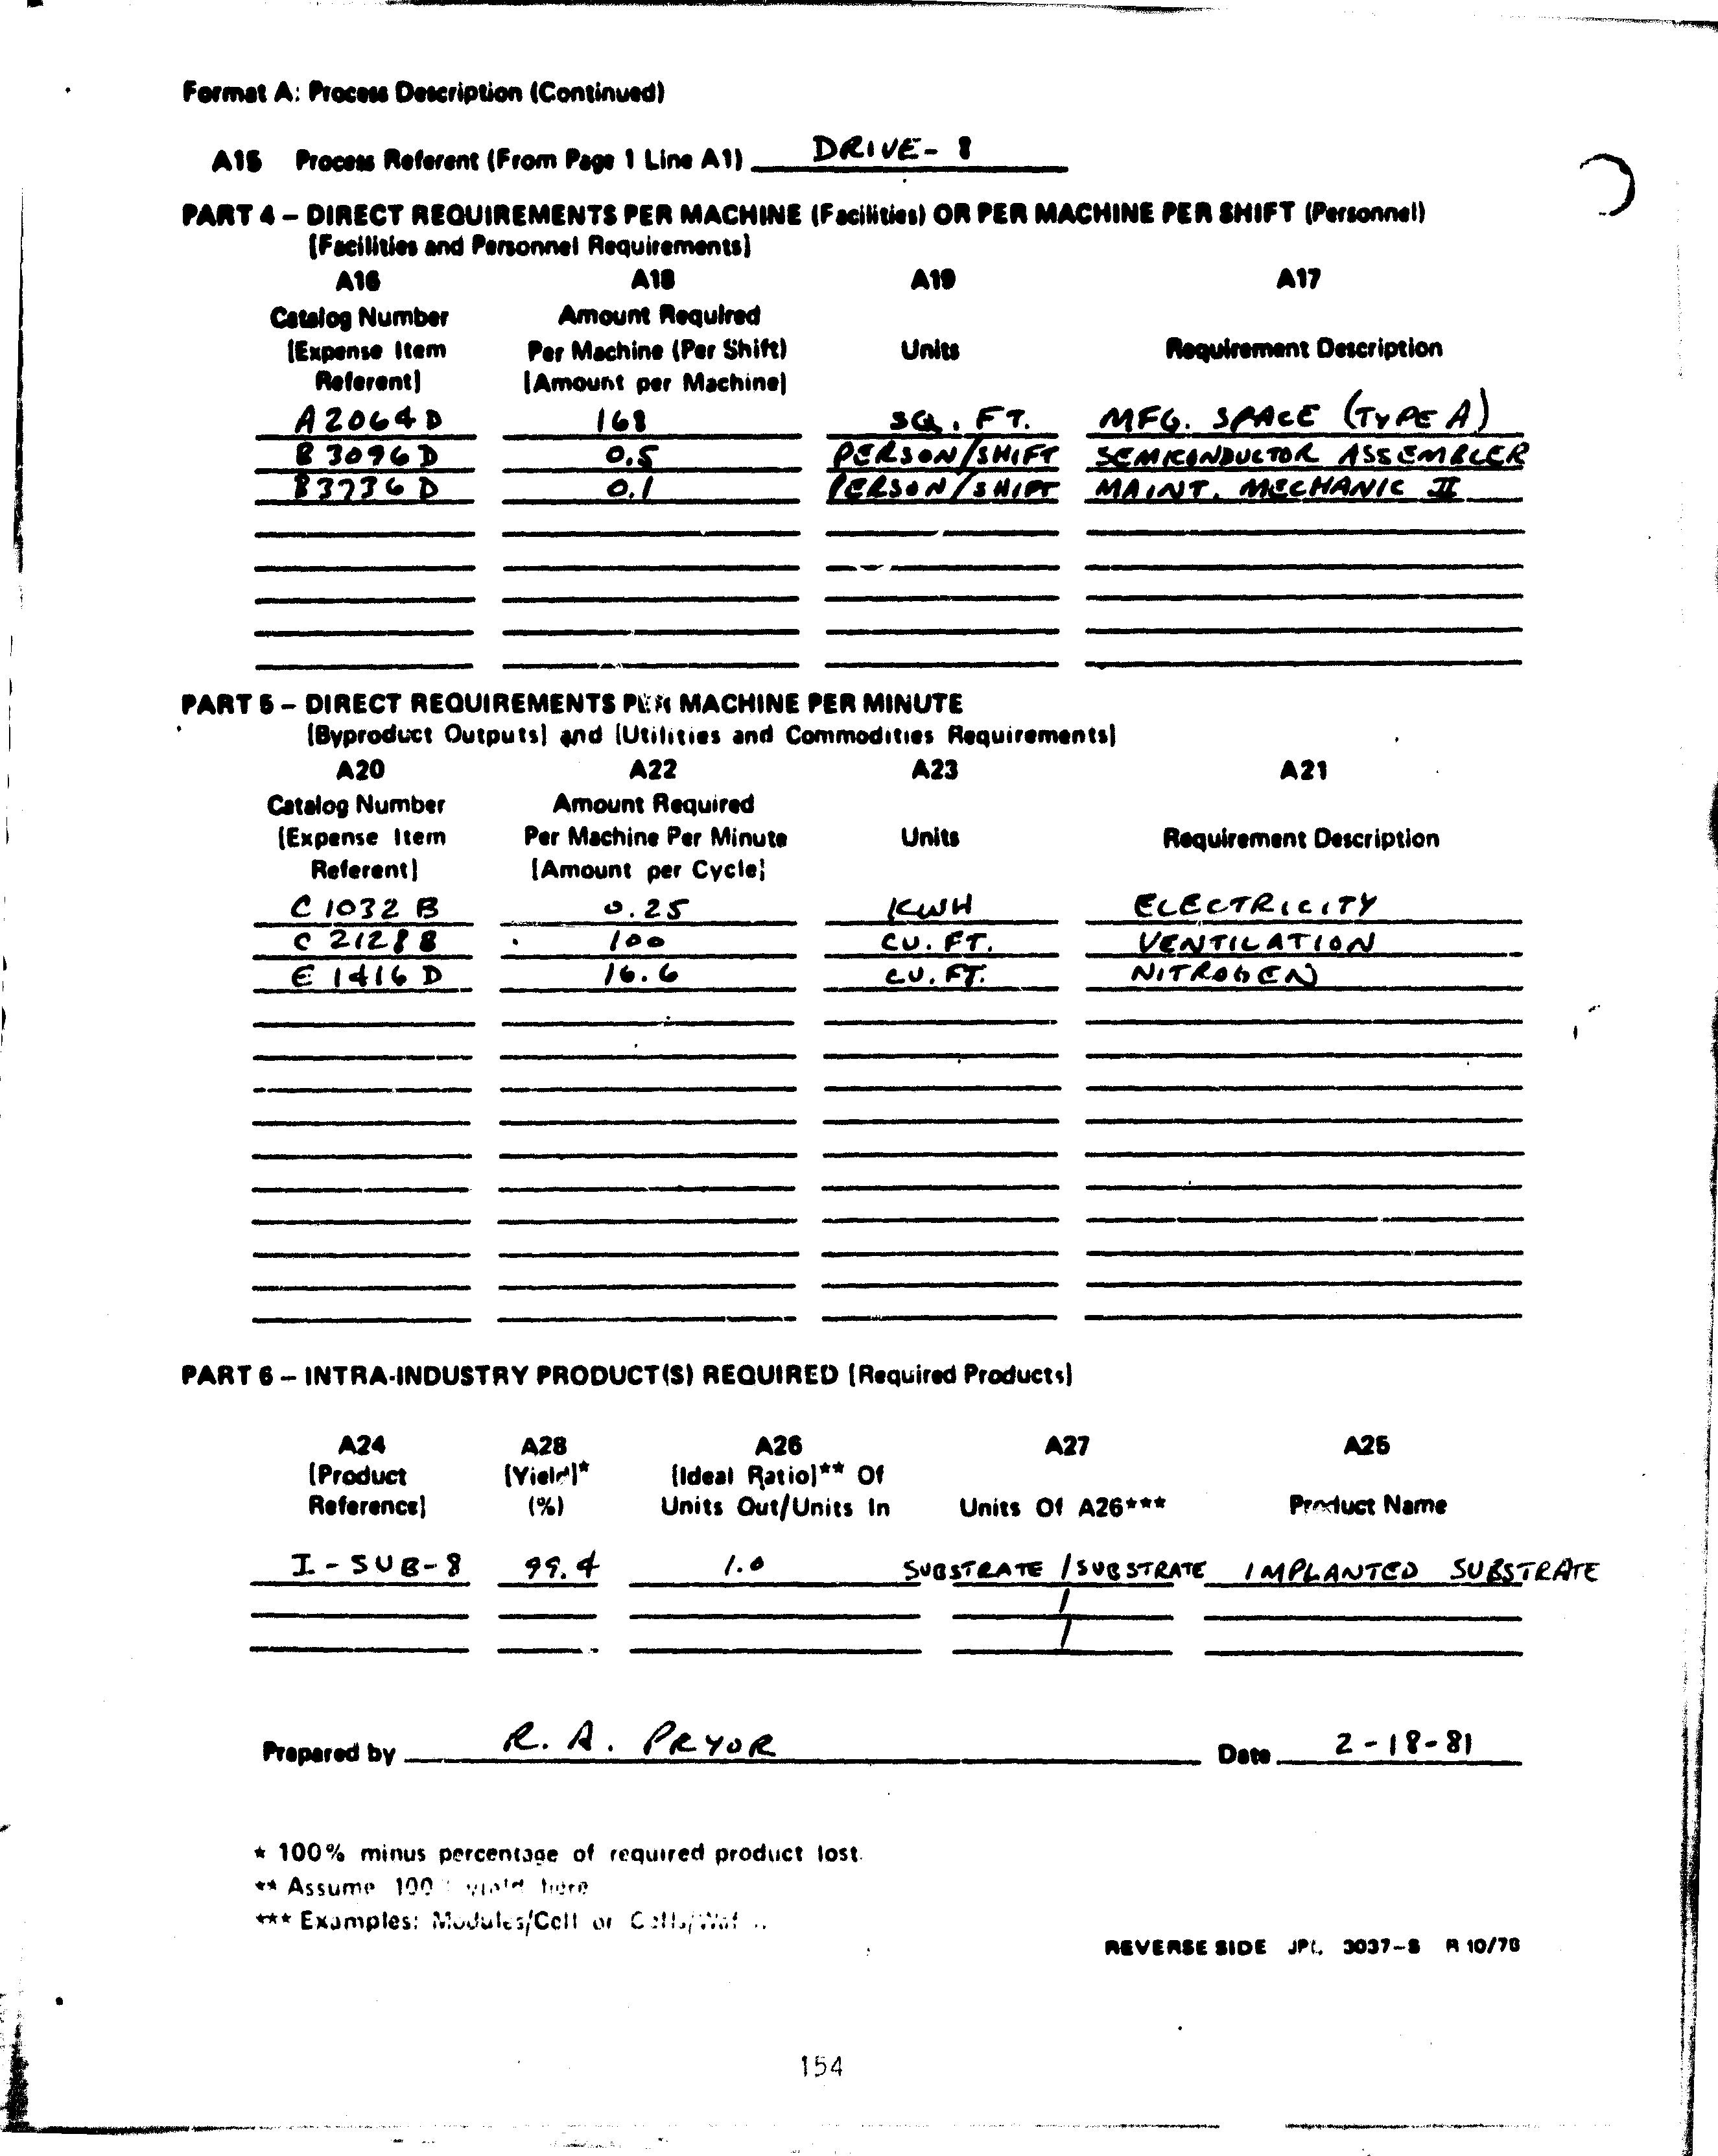 Format A: Process Description (Continued)
A15 Process Referent (From Page 1 Line A1) DRIVE-8
PART 4 – DIRECT REQUIREMENTS PER MACHINE (Facilities) OR PER MACHINE PER SHIFT (Personnel)
[Facilities and Personnel Requirements]
A16 A18 A19 A17
Catalog Number Amount Required
[Expense Item Per Machine (Per Shift) Units Requirement Description
Referent] [Amount per Machine]
A2064D 168 SQ. FT. MFG. SPACE (TYPE A)
B3096D 0.5 PERSON/SHIFT SEMICONDUCTOR ASSEMBLER
B3736D 0.1 PERSON/SHIFT MAINT. MECHANIC II
PART 5 – DIRECT REQUIREMENTS PER MACHINE PER MINUTE
[Byproduct Outputs] and [Utilities and Commodities Requirements]
A20 A22 A23 A21
Catalog Number Amount Required
[Expense Item Per Machine Per Minute Units Requirement Description
Referent] [Amount per Cycle]
C1032B 0.25 KWH ELECTRICITY
C2128B 100 CU. FT. VENTILATION
E1416D 16.6 CU. FT. NITROGEN
PART 6 – INTRA-INDUSTRY PRODUCT(S) REQUIRED [Required Products]
A24 A28 A26 A27 A25
[Product [Yield]* [Ideal Ratio]** Of
Reference] (%) Units Out/Units In Units Of A26*** Product Name
I-SUB-8 99.4 1.0 SUBSTRATE/SUBSTRATE IMPLANTED SUBSTRATE
/
/
Prepared by R. A. PRYOR Date 2-18-81
* 100% minus percentage of required product lost.
** Assume 100% yield here
*** Examples: Modules/Cell or Cells/
REVERSE SIDE JPL 3037-S R 10/78
154